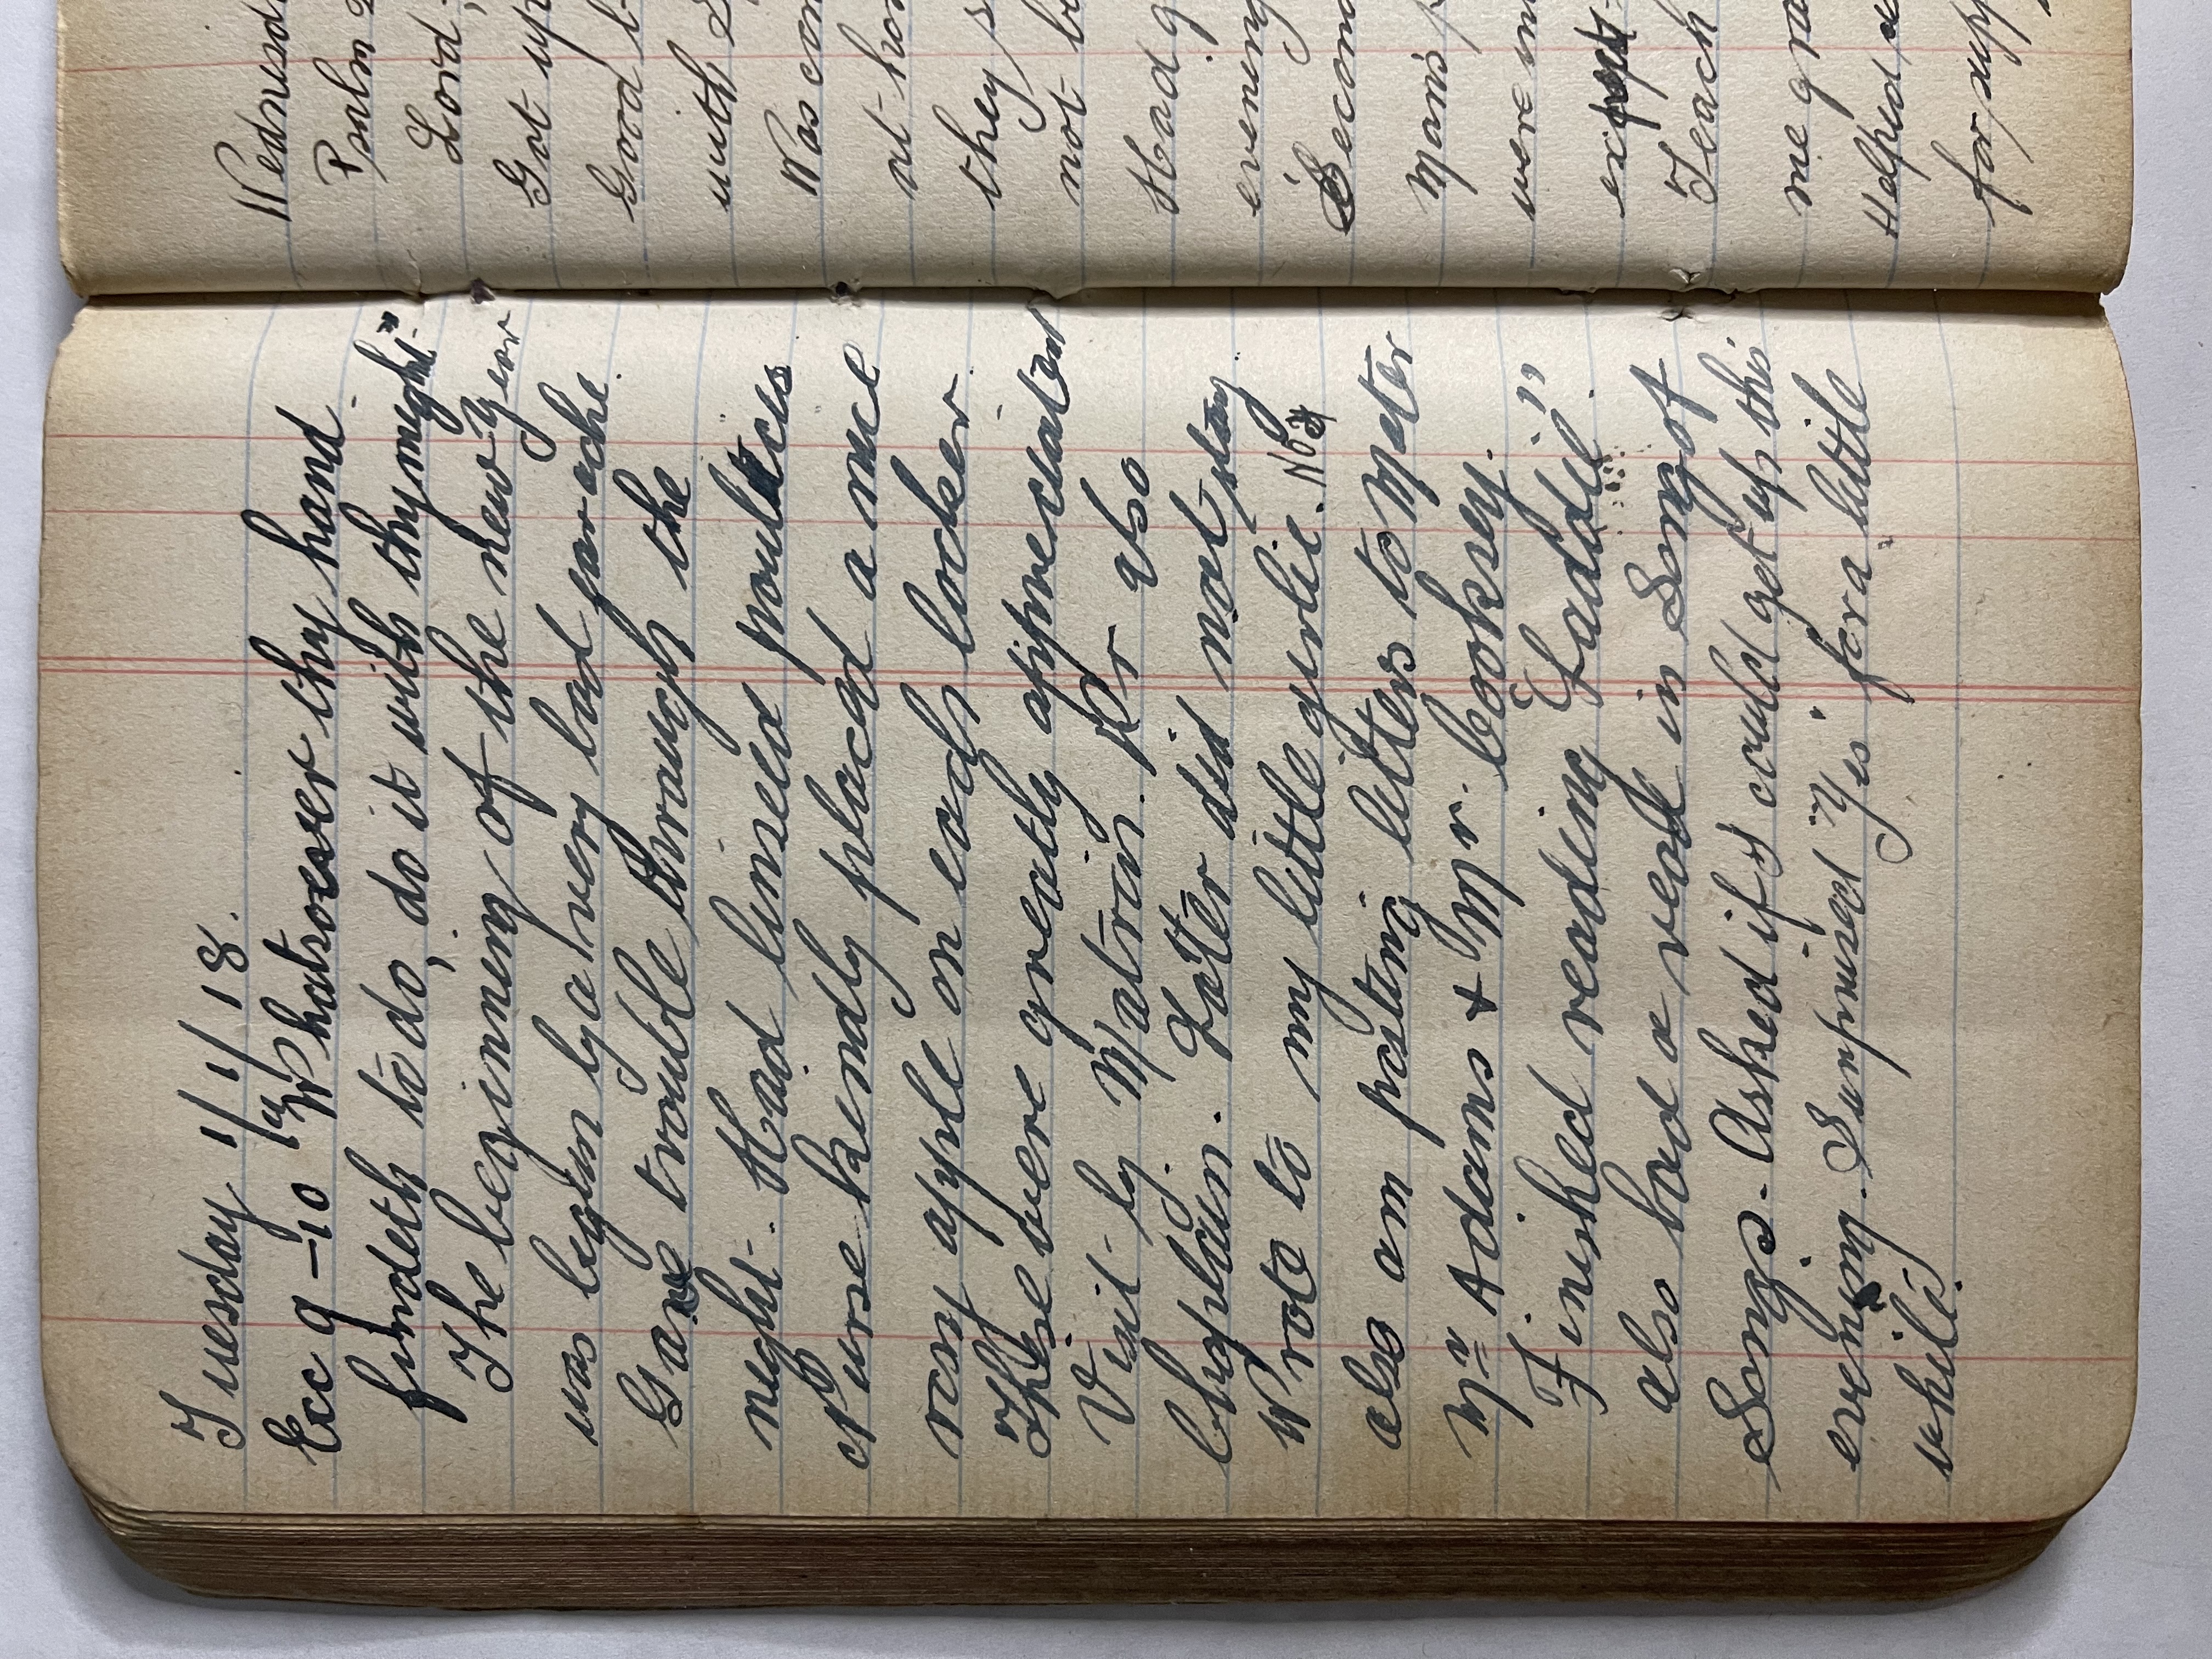 Tuesday 1/1/18.
Ecc 9-10 "Whatsoever thy hand
findeth to do, do it with thy might."
The beginning of the new year
was begun by a very bad jar ache.
Gave trouble through the
night. Had linseed poultices
Nurse kindly placed a nice
rosy apple on each locker.
These were greatly appreciated
Visit by Matron. Dr also
Chaplain. Latter did not stay
Wrote to my little girlie. No 34
also am posting letters to Mater
Mrs Adams & Mr. Cooksey.
Finished reading "Laddie"
also had a read in Song of
Songs. Asked if I could get up this
evening. Surprised "Yes" for a little
while.
Wednesd
Psalm
Lord,
Got up
Good
with
Was con
at hom
they
not
Had g
evening
Second
Man's
were
except
Teach
me gra
Helped
for supp